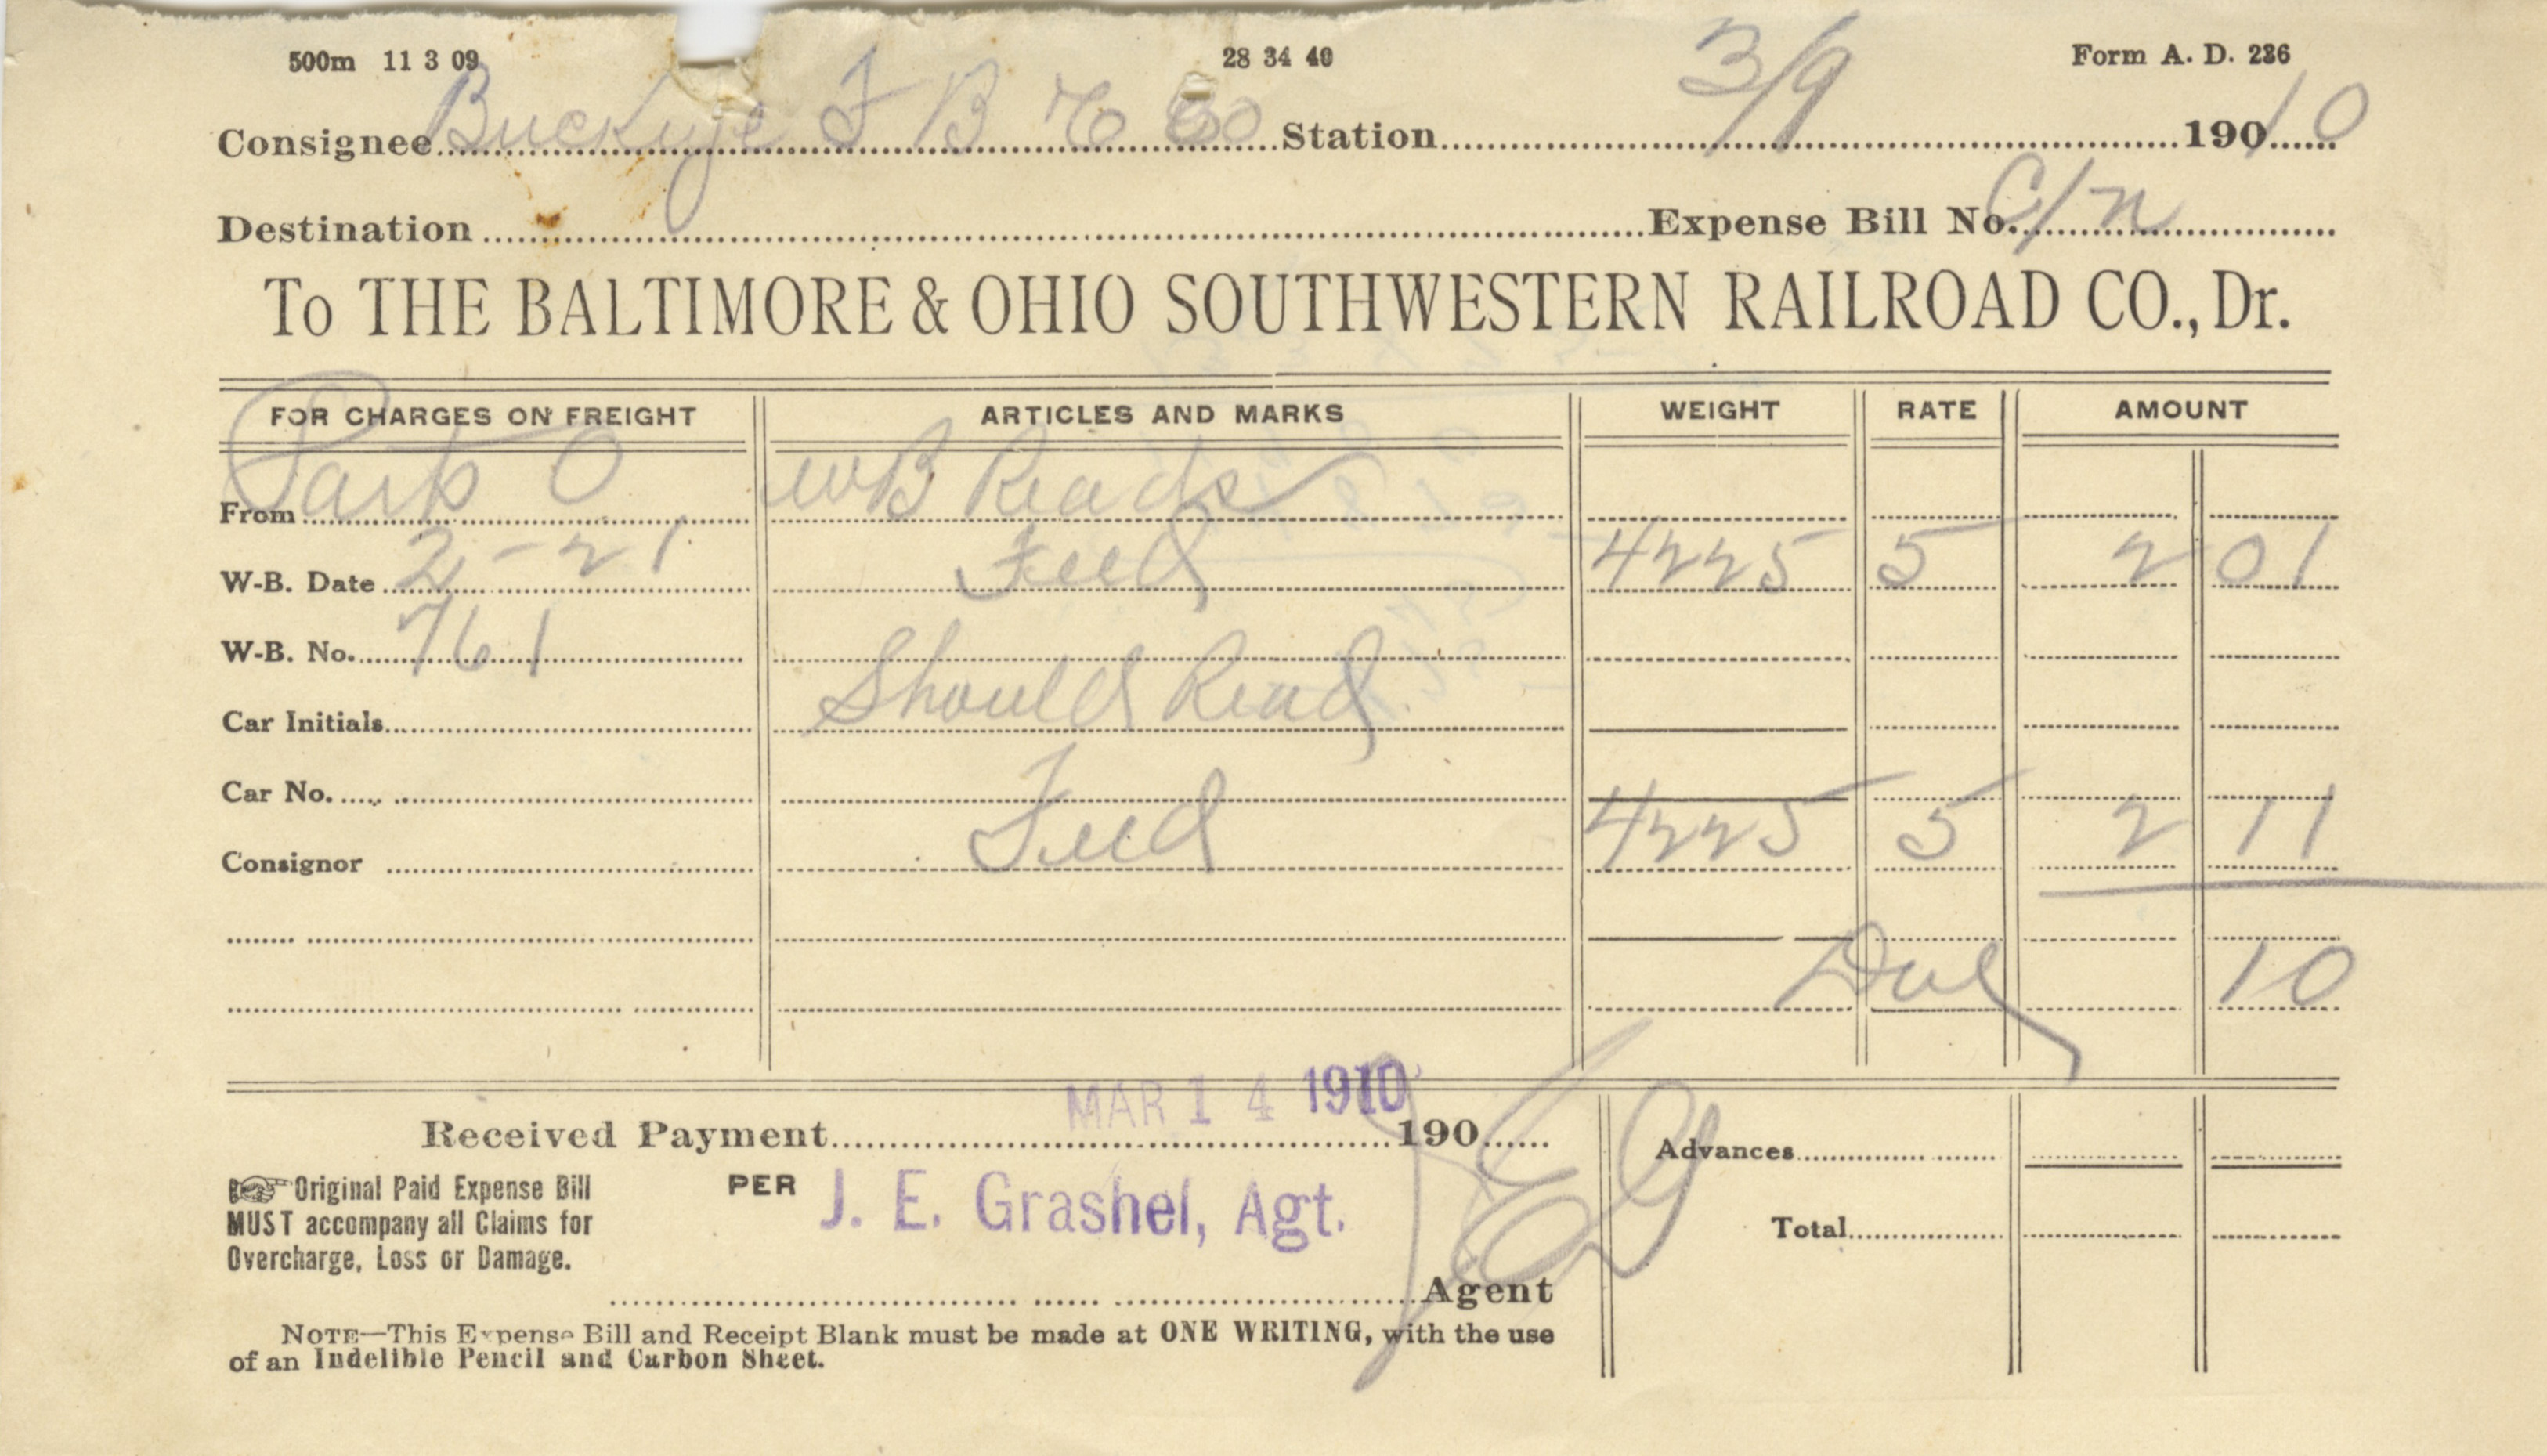 500m 11 3 09 28 34 40 Form A. D. 236
Consignee Buckeye F B Co Station 3/9 190 10
Destination Expense Bill No. C/n
To THE BALTIMORE & OHIO SOUTHWESTERN RAILROAD CO., Dr.
FOR CHARGES ON FREIGHT ARTICLES AND MARKS WEIGHT RATE AMOUNT
From O WB Reads
W-B. Date 2-21 Feed 4225 5 2 01
W-B. No. 761
Car Initials Should Read
Car No.
Consignor Feed 4225 5 2 11
Due 10
MAR 14 1910
Received Payment 190 Advances
Original Paid Expense Bill
MUST accompany all Claims for
Overcharge, Loss or Damage.
PER J. E. Grashel, Agt.
Total
Agent
NOTE—This Expense Bill and Receipt Blank must be made at ONE WRITING, with the use
of an Indelible Pencil and Carbon Sheet.